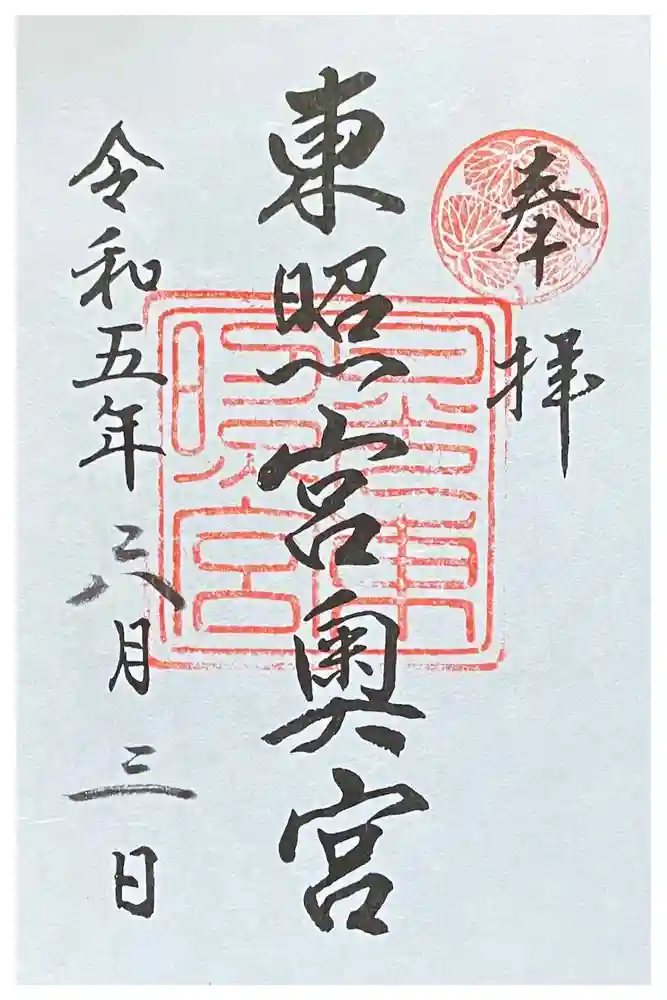 奉拝
東照宮奥宮
令和五年六月三日
日光東
照宮